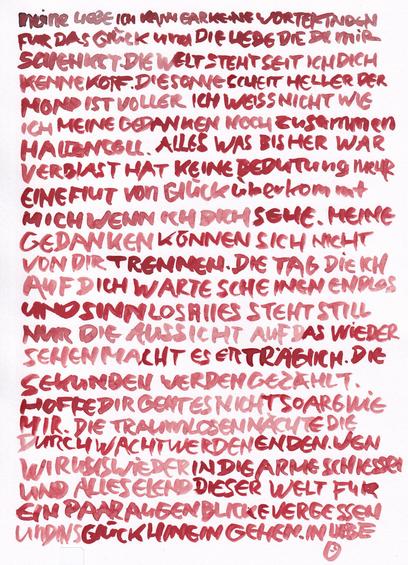 meine LIEBE ICH KANN GAR KEINE WORTE FINDEN
FÜR DAS GLÜCK UND DIE LIEBE DIE DU MIR
SCHENKST. DIE WELT STEHT SEIT ICH DICH
KENNE KOPF. DIE SONNE SCHEIT HELLER DER
MOND IST VOLLER ICH WEISS NICHT WIE
ICH MEINE GEDANKEN NOCH ZUSAMMEN
HALTEN SOLL. ALLES WAS BISHER WAR
VERBLAST HAT KEINE BEDEUTUNG MEHR
EINE FLUT VON GLÜCK überkommt
MICH WENN ICH DICH SEHE. MEINE
GEDANKEN KÖNNEN SICH NICHT
VON DIR TRENNEN. DIE TAG DIE ICH
AUF DICH WARTE SCHEINEN ENDLOS
UND SINNLOS ALLES STEHT STILL
NUR DIE AUSSICHT AUF DAS WIEDER
SEHEN MACHT ES ERTRÄGLICH. DIE
SEKUNDEN WERDEN GEZÄHLT.
HOFFE DIR GEHT ES NICHT SO ARG WIE
MIR. DIE TRAUMLOSEN NÄCHTE DIE
DURCHWACHT WERDEN ENDEN. WEN
WIR UNS WIEDER IN DIE ARME SCHIESSEN
UND ALLES ELEND DIESER WELT FÜR
EIN PAAR AUGENBLICKE VERGESSEN
UND INS GLÜCK HINEIN GEHEN. IN LIEBE